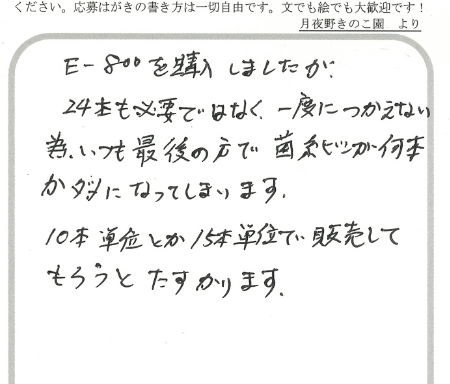 ください。応募はがきの書き方は一切自由です。文でも絵でも大歓迎です！
月夜野きのこ園　より
E-800を購入しましたが、
24本も必要ではなく、一度につかえない
為、いつも最後の方で菌糸ビンが何本
かダメになってしまいます。
10本単位とか15本単位で販売して
もらうとたすかります。